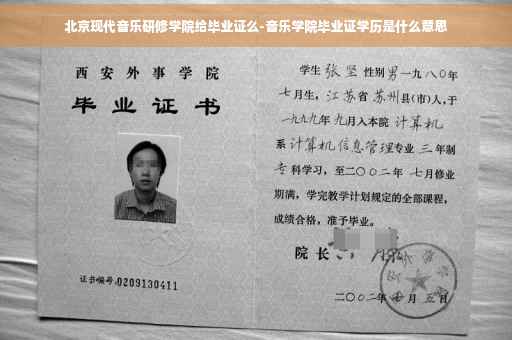 北京现代音乐研修学院给毕业证么-音乐学院毕业证学历是什么意思
西安外事学院
毕业证书
证书编号:0209130411
学生 张坚 性别 男 一九八〇年
七月生，江苏省 苏州县(市)人，于
一九九九年 九月入本院 计算机
系 计算机信息管理专业 三 年制
专科学习，至二〇〇二年 七月修业
期满，学完教学计划规定的全部课程，
成绩合格，准予毕业。
院长
二〇〇二年 月 五日